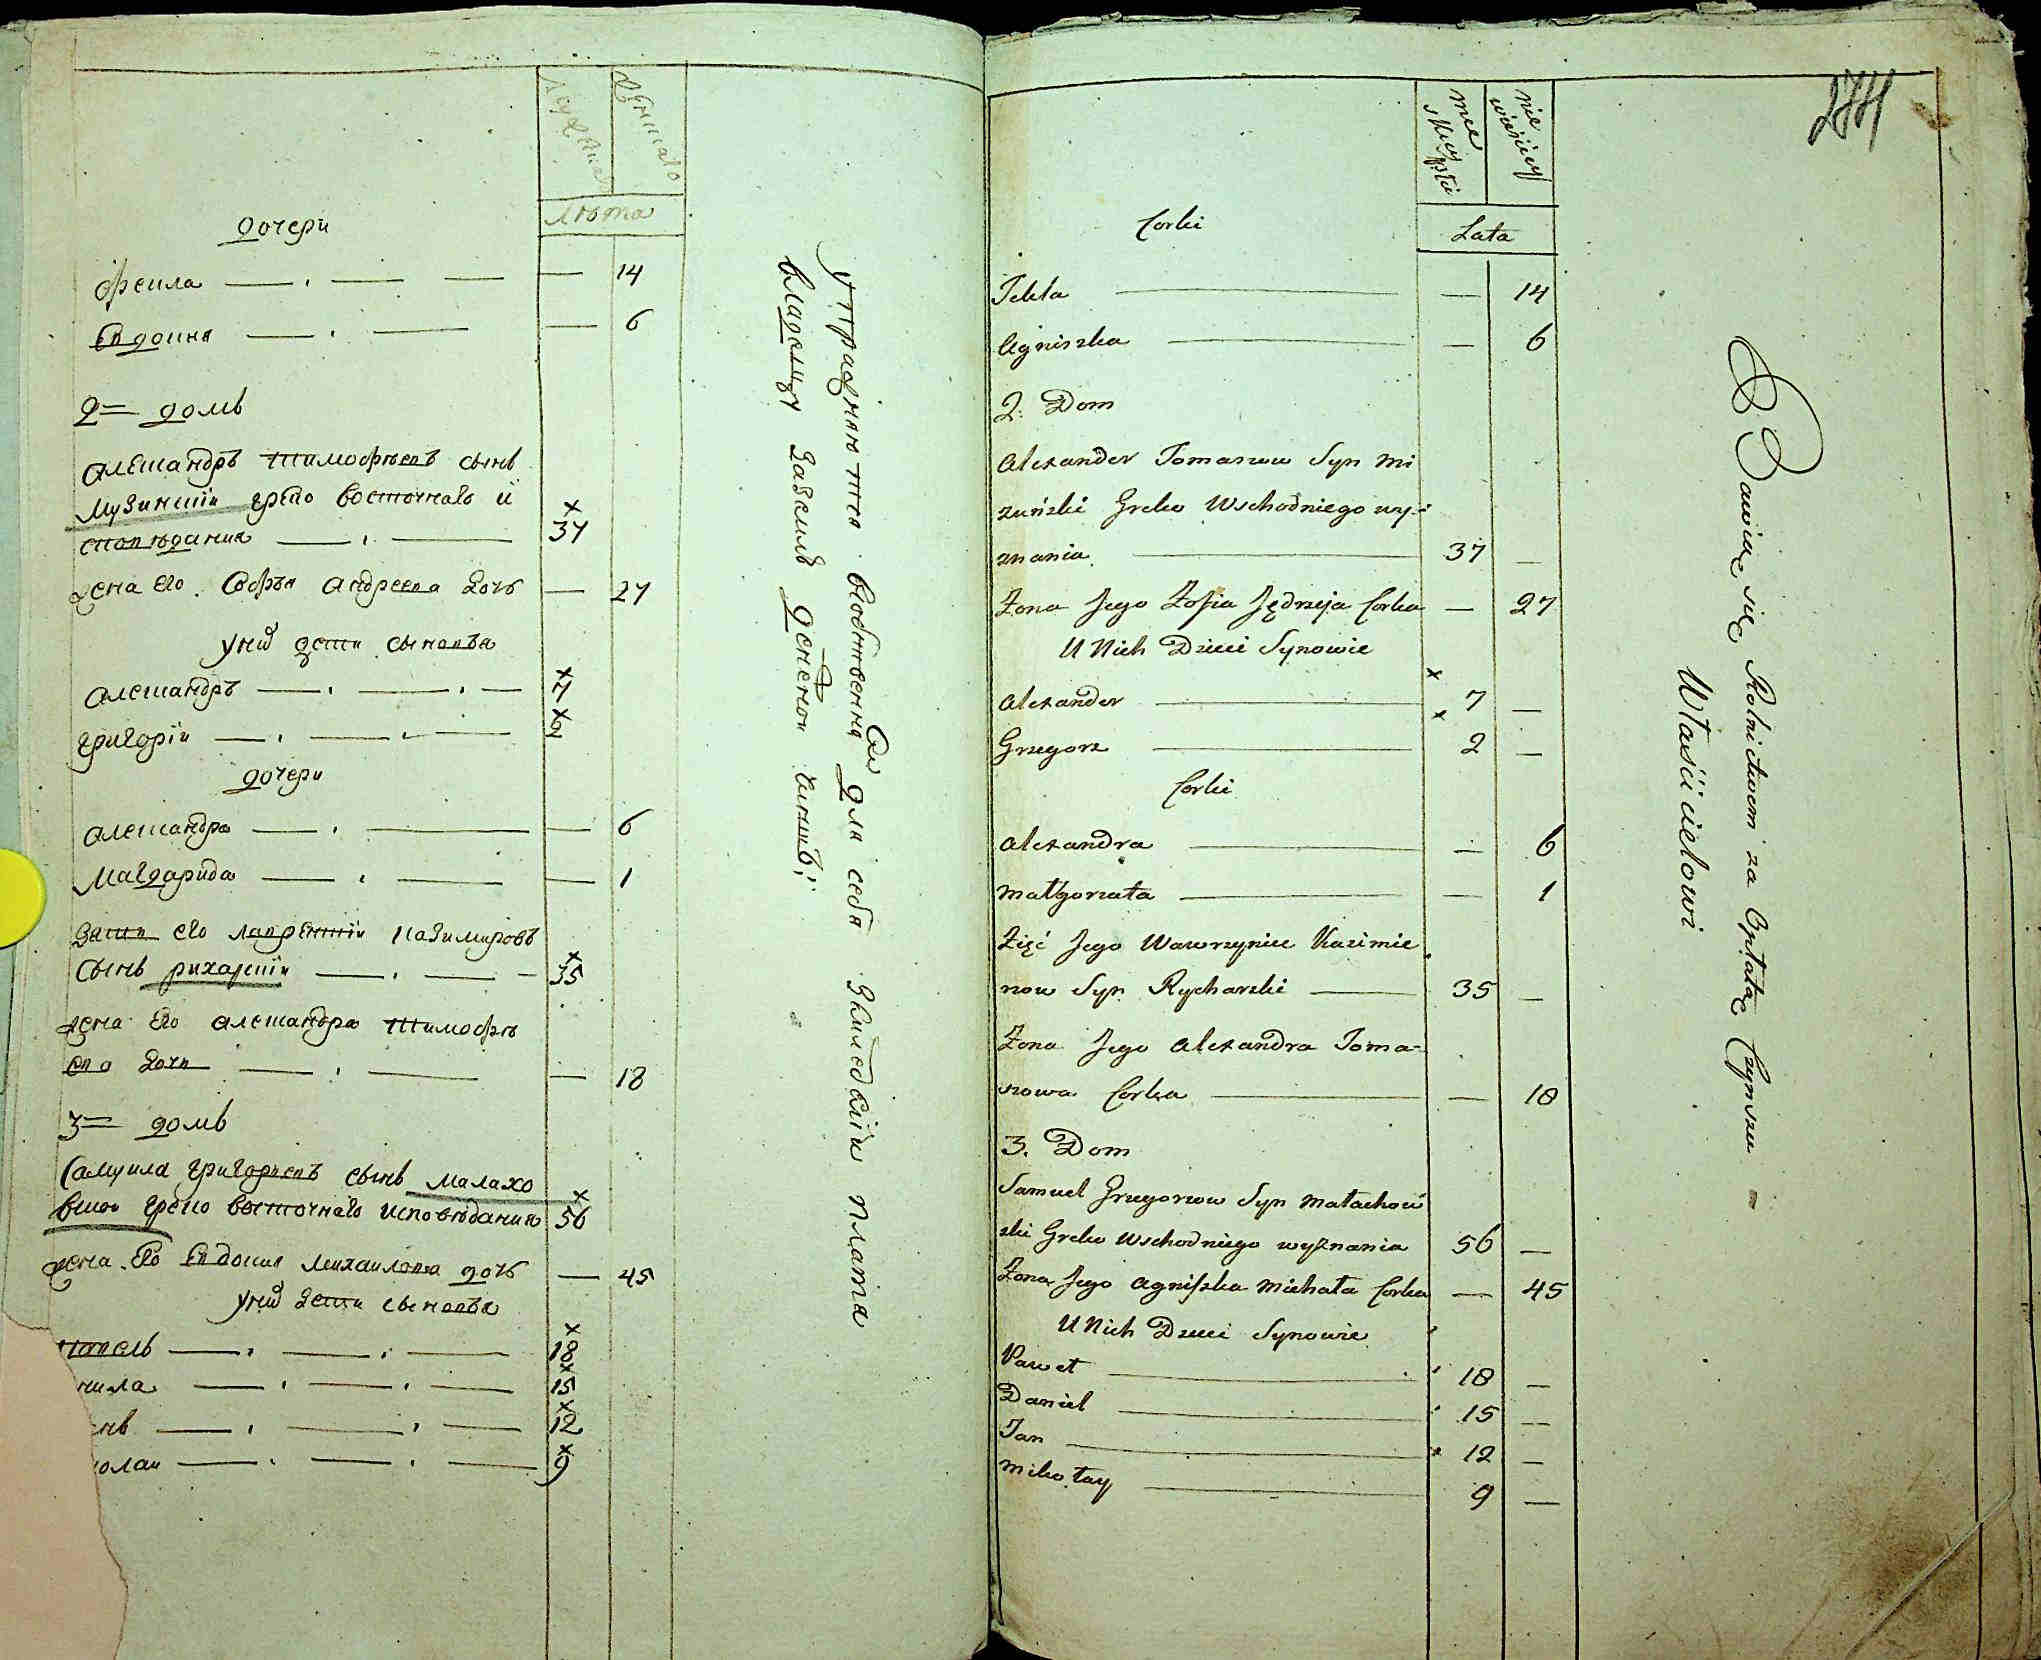 Дочери
Фекла 14
Евдокия 6
2 = домъ
Александръ Тимофѣевъ сынъ
Музинскій греко восточнаго и
споведания 37
жена его Софья Андреева дочь 27
у нихъ дети сыновья
Александръ 7
Григорій 2
дочери
Александра 6
Маргарида 1
Зять его Лаврентій Казимировъ
сынъ Рихарскій 35
жена его Александра Тимофѣ
ева дочь 18
3 = домъ
Самуила Григорьевъ сынъ Малахо
вской греко восточнаго исповѣдания 56
жена его Евдокия Михаилова дочь 45
у нихъ дети сыновья
павелъ 18
нила 15
12
колаи 9
Лѣта
упражняются
для себя
владельцу
плата
274
męskiey płci
niewieściey
Lata
Corki
Tekla 14
Agniszka 6
2. Dom
Alexander Tomaszow Syn Mi
zuński Greko Wschodniego wy-
znania 37
Żona Jego Zofia Jędrzeja Corka 27
U Nich Dzieci Synowie
Alexander 7
Grzegorz 2
Corki
Alexandra 6
Małgorzata 1
Zięć Jego Wawrzyniec Kazimie
row Syn Rycharski 35
Żona Jego Alexandra Toma-
szowa Corka 18
3. Dom
Samuel Grzegorzow Syn Małachow
ski Greko Wschodniego wyznania 56
Żona Jego Agniszka Michała Corka 45
U Nich Dzieci Synowie
Paweł 18
Daniel 15
Jan 12
Mikołay 9
Bawią się Rolnictwem za Opłatę Czynszu
Właścicielowi